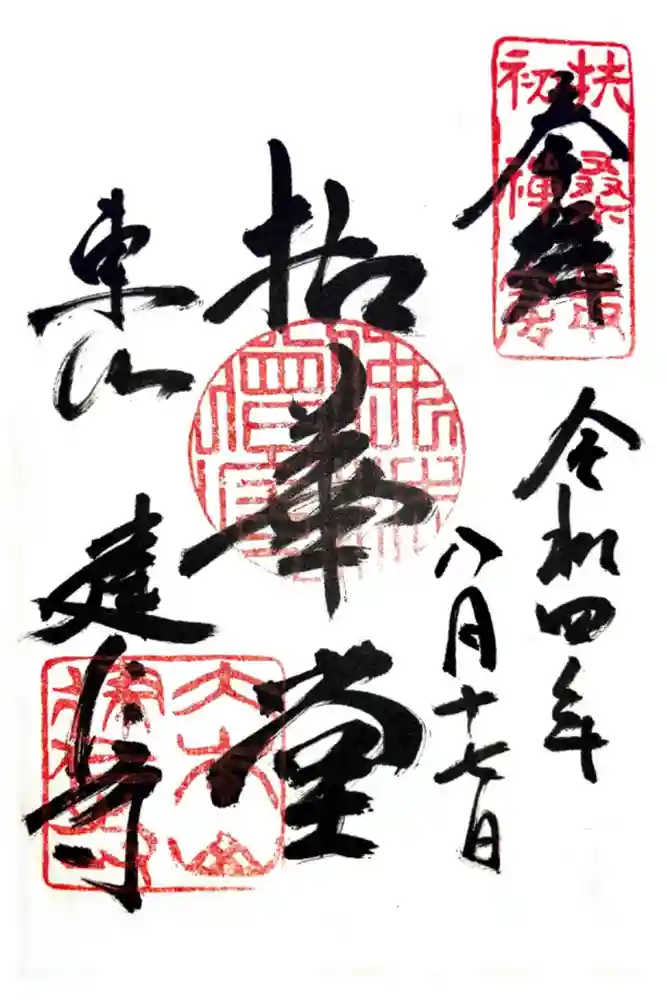 奉拝
扶桑最
初禅窟
令和四年
八月十七日
拈華堂
東山
建仁寺
大本山
建仁寺